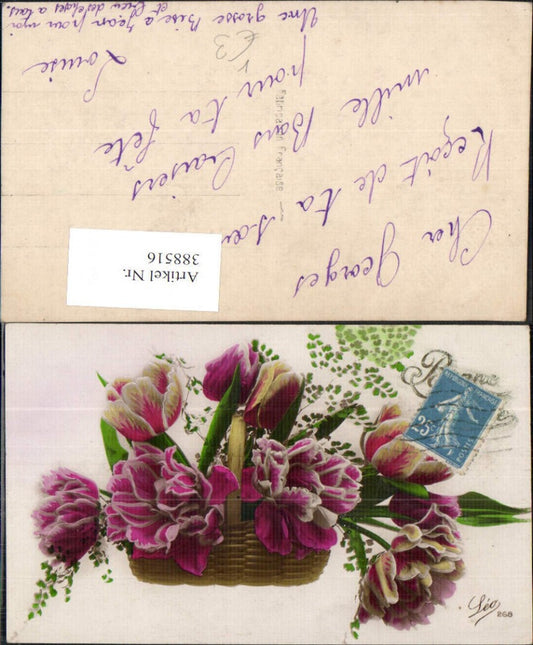 Cher Georges
Reçoit de ta sœur
mille Bons baisers
pour ta fête
Louise
Une grosse Bise a Jean pour moi
Fabrication Française
€3
Artikel Nr.
388516
Bonne
25c
POSTES
Léo
268